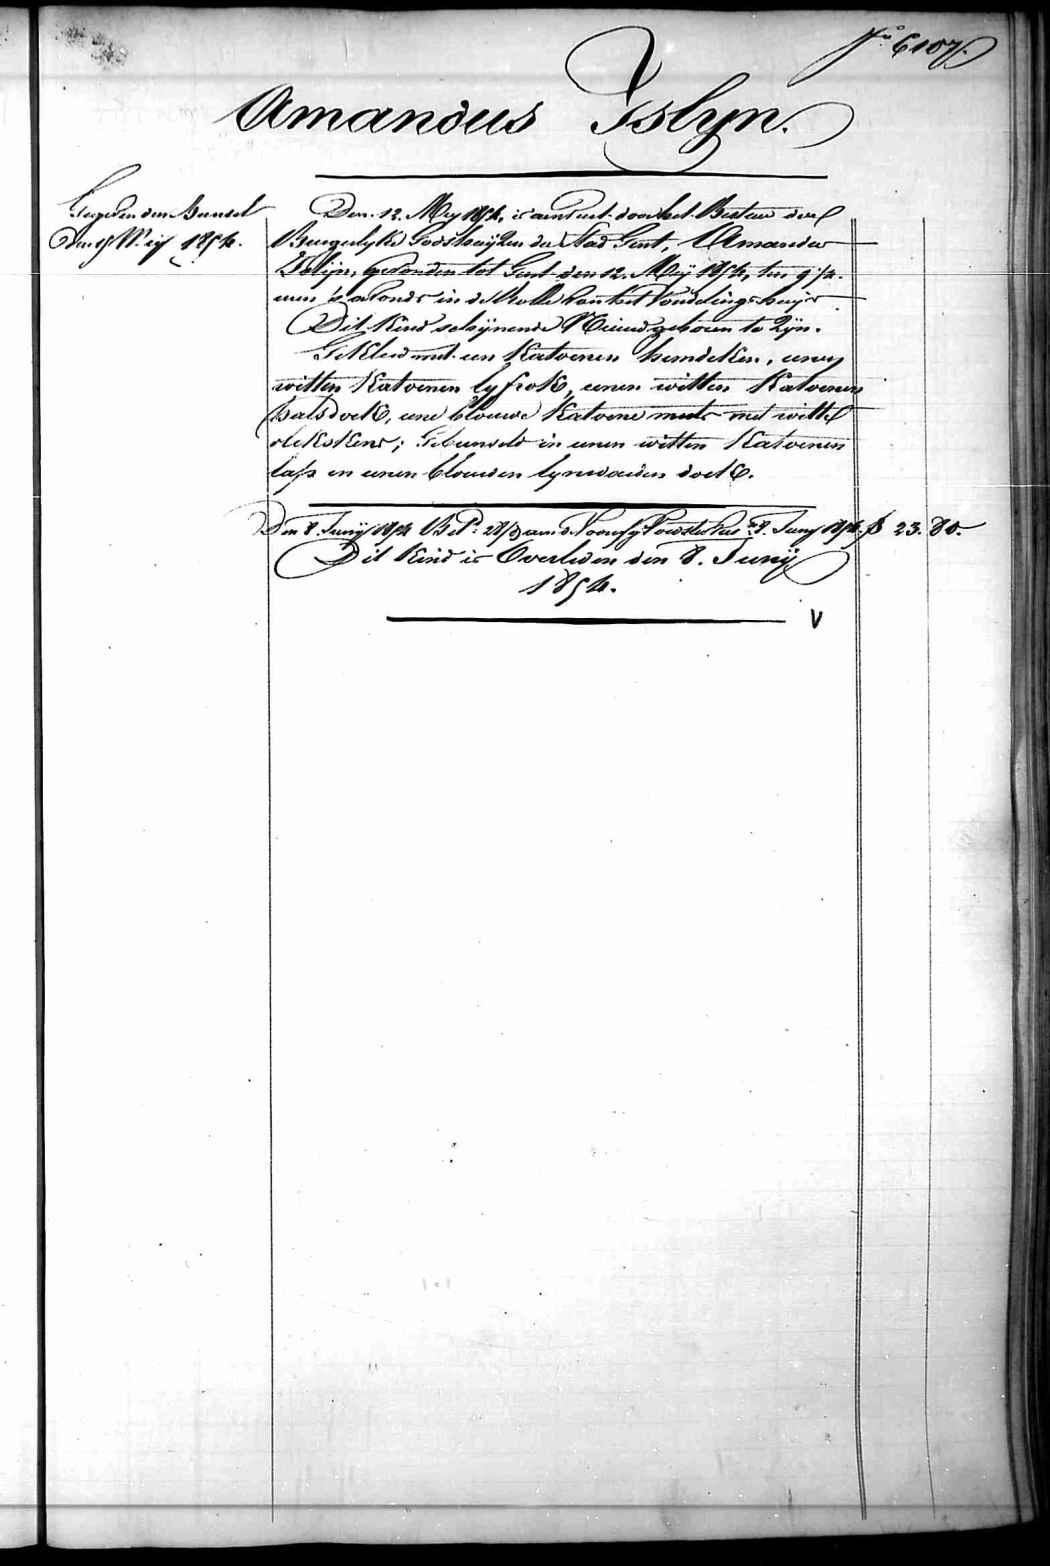 6107.
Amandus Yslyn.
Gegeven den Bunsel
1854.
Den 12. Mey 1854, is aenveerd door het Bestuer der
Burgerlyke Godshuijzen der Stad Gent, Amandus
Yslijn, gevonden tot Gent den 12. Meij 1854, ten 9 1/2
uren 's avonds in de Rolle van het Vondelingshuijs.
Dit Kind schijnende Nieuwgeboren te Zijn.
Gekleed met een Katoenen hemdeken, eenen
witten Katoenen lyfrok, eenen witten Katoenen
halsdoek, eene blauwe Katoene muts met witte
plekskens; Gebunseld in eenen witten Katoenen
laps en eenen blauwen lynwaeden doek.
Den 8. Junij 1854 Juny 1854. 23. 80.
Dit Kind is Overleden den 8. Junij
1854.
V